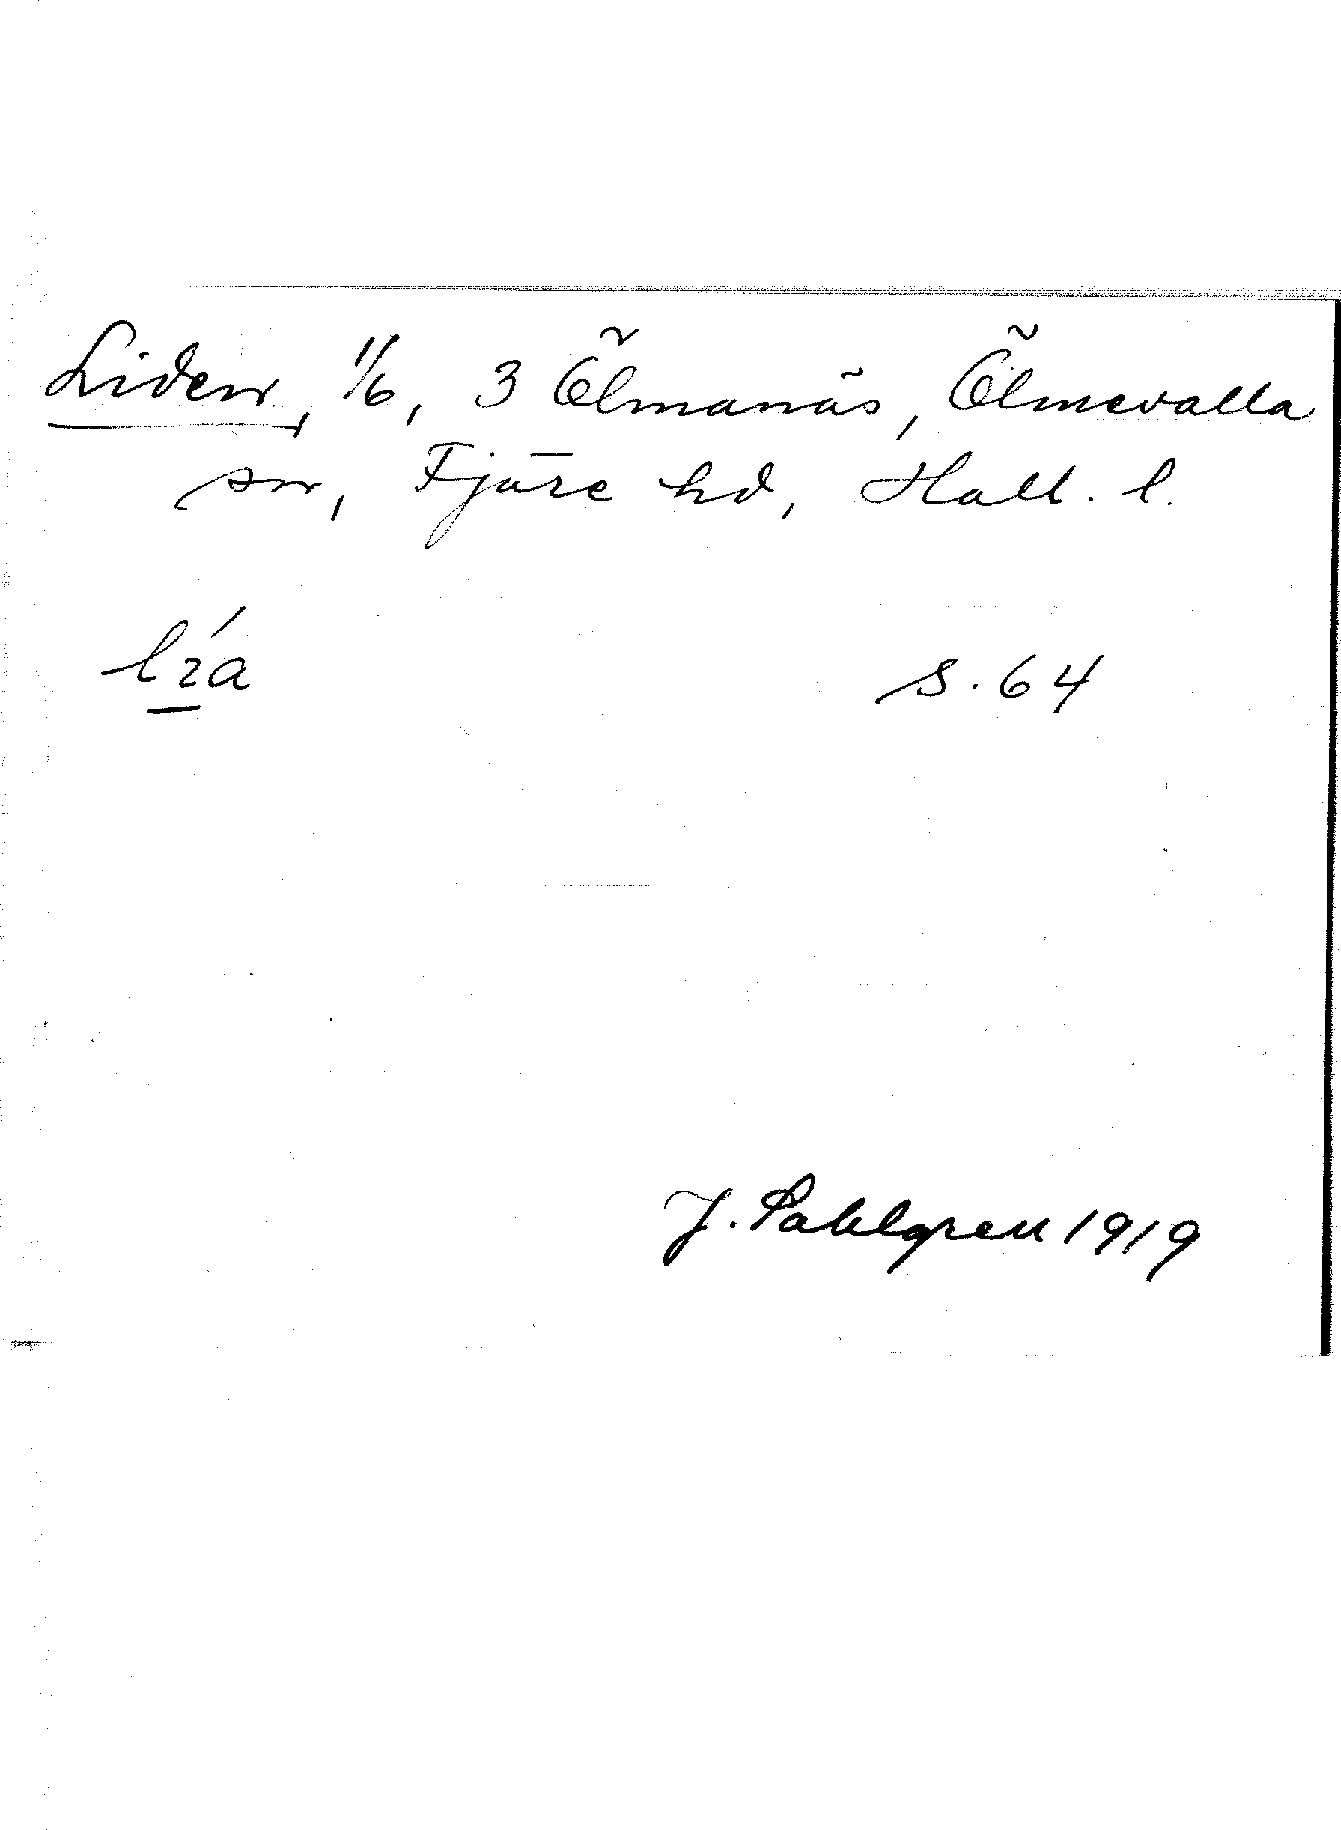 Liden, 1/6, 3 Ölmanäs, Ölmevalla
sn, Fjäre hd, Hall. l.
s. 64
J. Sahlgren 1919